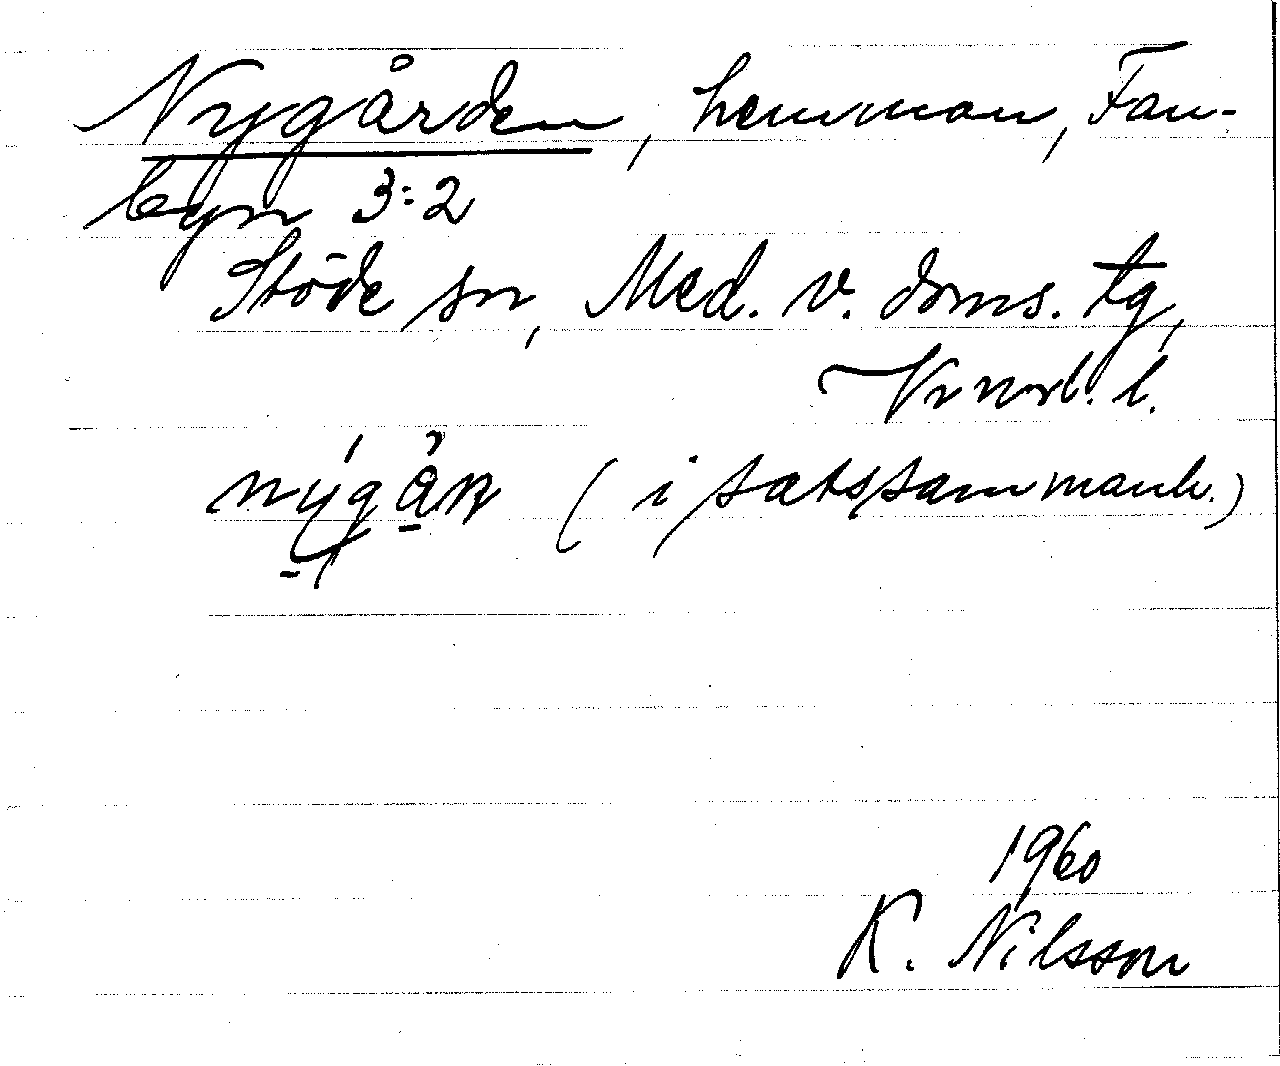 Nygården, hemman, Fan-
byn 3:2
Stöde sn, Med. v. doms. tg,
V:norl. l.
(i satssammanh.)
1960
K. Nilsson